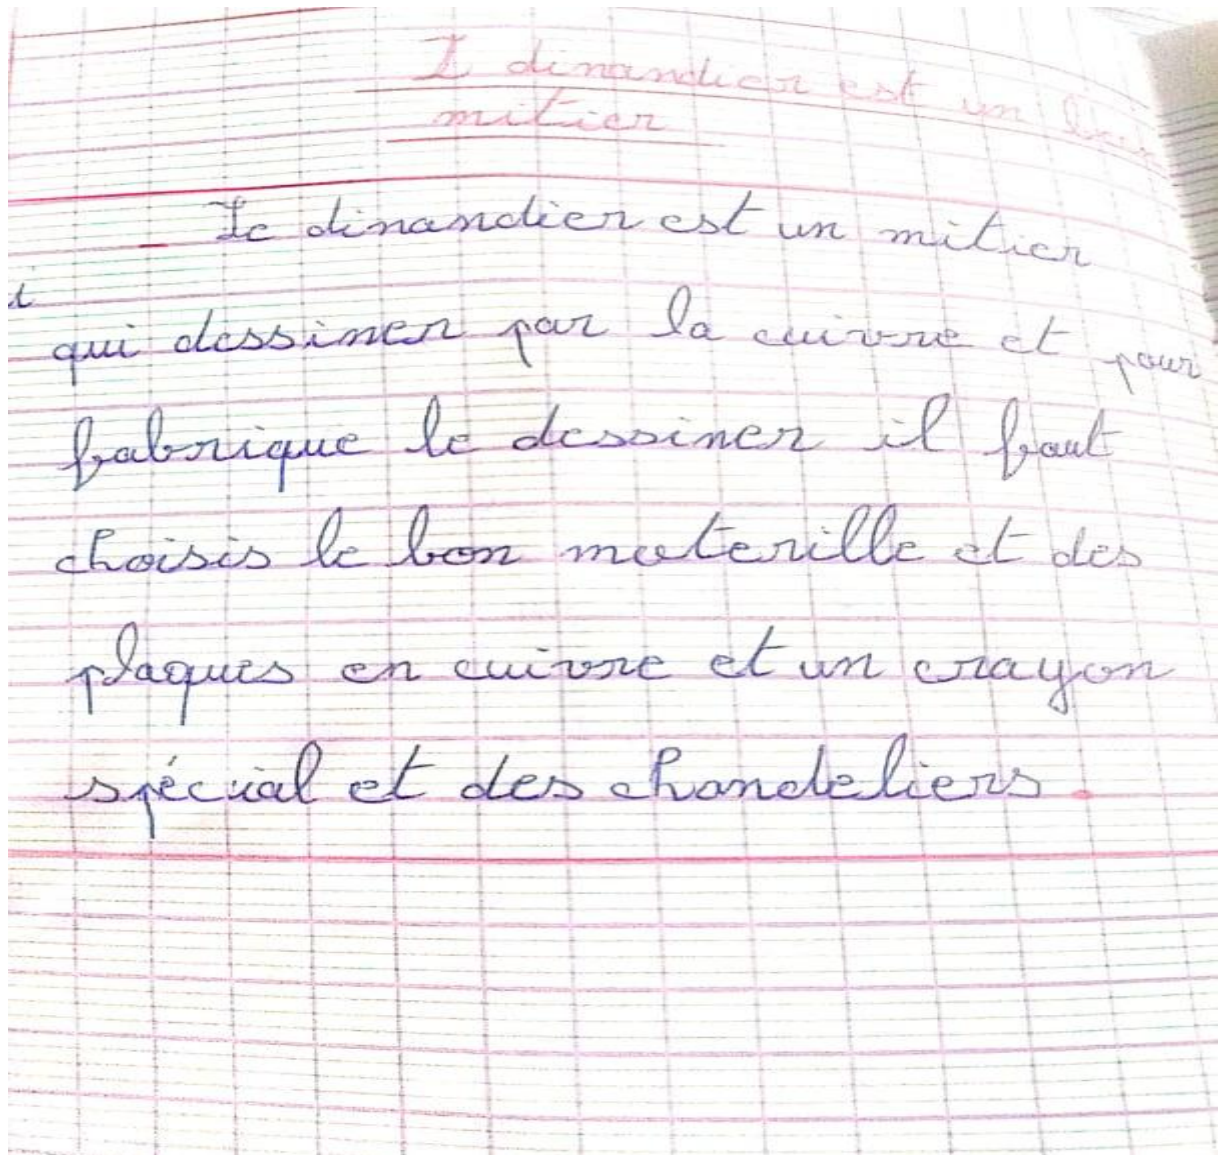 dinandier est un
mitier
_ Le dinandier est un mitier
qui dessiner par la cuivre et pour
fabrique le dessiner il faut
choisis le bon materille et des
plaques en cuivre et un crayon
spécial et des chandeliers.